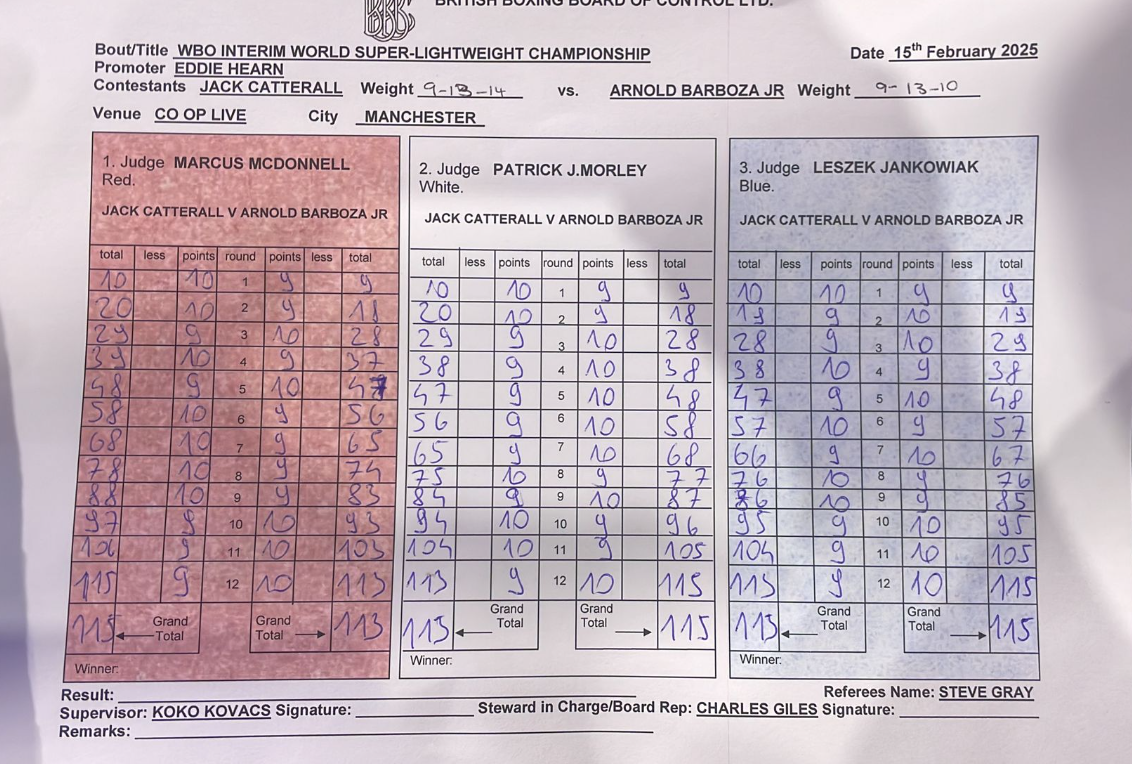 BRITISH BOXING BOARD OF CONTROL LTD.
Bout/Title WBO INTERIM WORLD SUPER-LIGHTWEIGHT CHAMPIONSHIP Date 15th February 2025
Promoter EDDIE HEARN
Contestants JACK CATTERALL Weight 9-13-14 vs. ARNOLD BARBOZA JR Weight 9-13-10
Venue CO OP LIVE City MANCHESTER
1. Judge MARCUS MCDONNELL
Red.
JACK CATTERALL V ARNOLD BARBOZA JR
total less points round points less total
10 10 1 9 9
20 10 2 9 18
29 9 3 10 28
39 10 4 9 37
48 9 5 10 47
58 10 6 9 56
68 10 7 9 65
78 10 8 9 74
88 10 9 9 83
97 9 10 10 93
106 9 11 10 103
115 9 12 10 113
115 Grand Total Grand Total 113
Winner:
2. Judge PATRICK J.MORLEY
White.
JACK CATTERALL V ARNOLD BARBOZA JR
total less points round points less total
10 10 1 9 9
20 10 2 9 18
29 9 3 10 28
38 9 4 10 38
47 9 5 10 48
56 9 6 10 58
65 9 7 10 68
75 10 8 9 77
84 9 9 10 87
94 10 10 9 96
104 10 11 9 105
113 9 12 10 115
113 Grand Total Grand Total 115
Winner:
3. Judge LESZEK JANKOWIAK
Blue.
JACK CATTERALL V ARNOLD BARBOZA JR
total less points round points less total
10 10 1 9 9
19 9 2 10 19
28 9 3 10 29
38 10 4 9 38
47 9 5 10 48
57 10 6 9 57
66 9 7 10 67
76 10 8 9 76
86 10 9 9 85
95 9 10 10 95
104 9 11 10 105
113 9 12 10 115
113 Grand Total Grand Total 115
Winner:
Result: Referees Name: STEVE GRAY
Supervisor: KOKO KOVACS Signature: Steward in Charge/Board Rep: CHARLES GILES Signature:
Remarks: